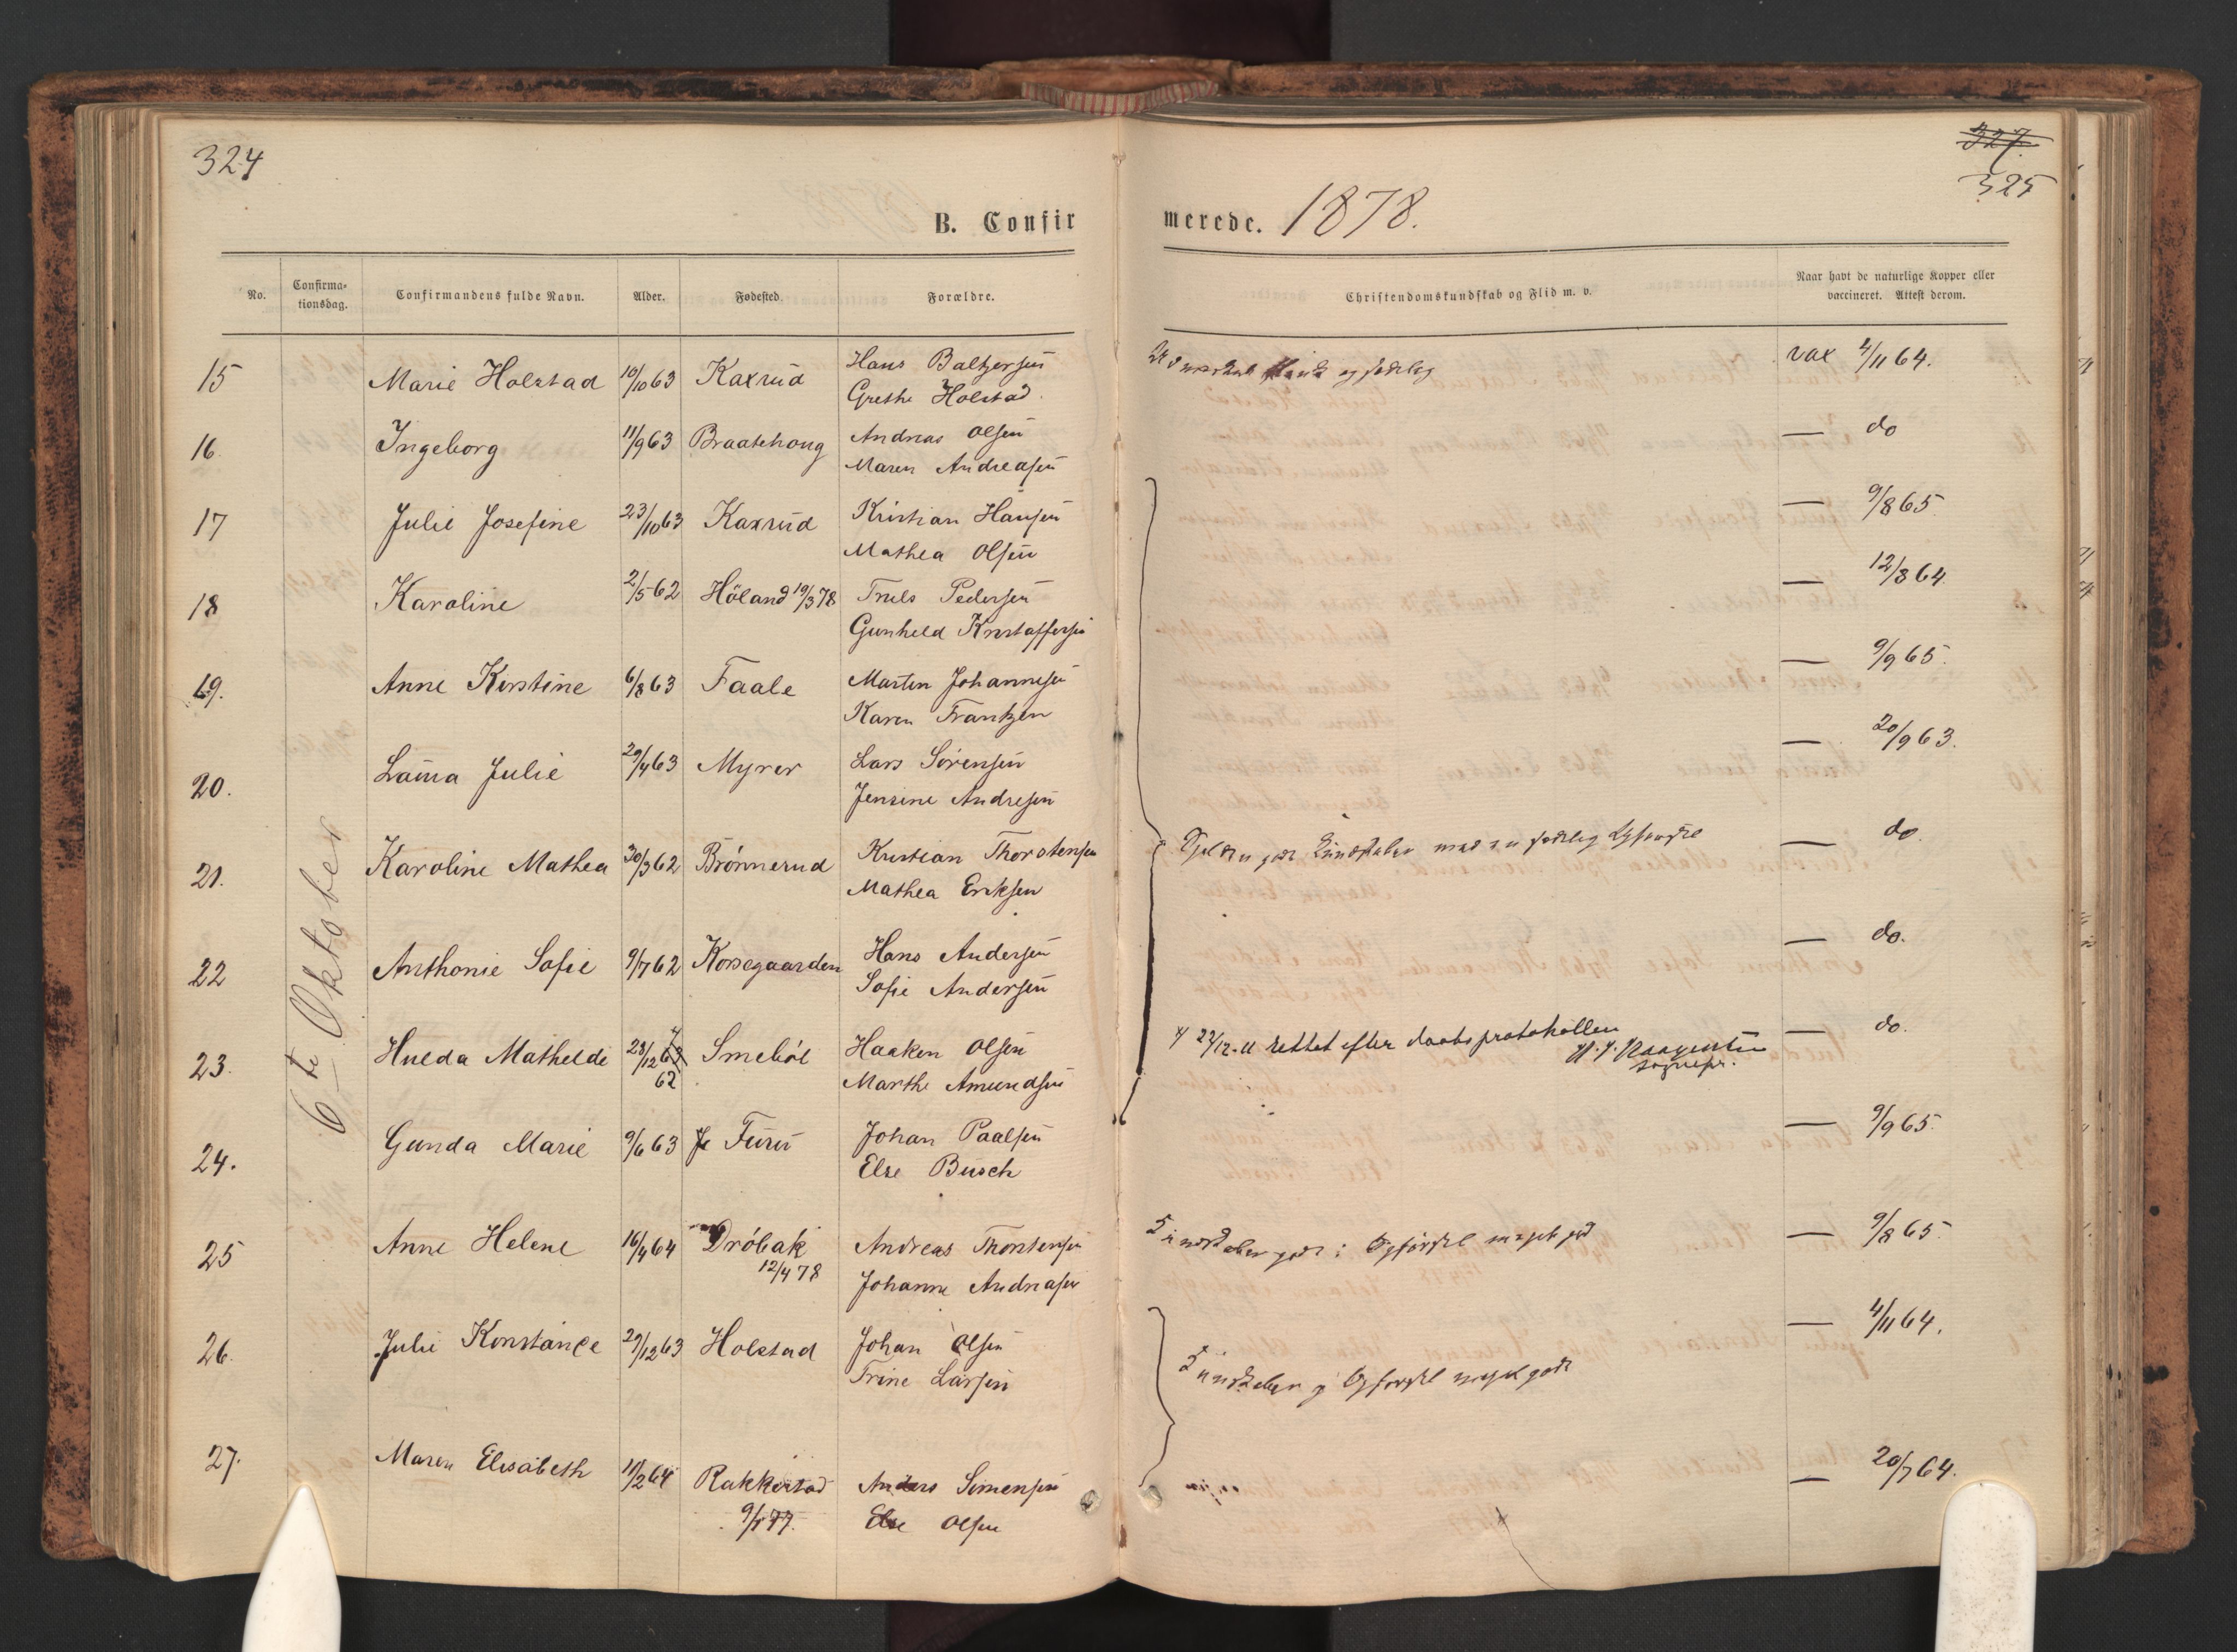 324
327.
325
B. Confirmerede. 1878.
No. Confirmationsdag. Confirmandens fulde Navn. Alder. Fødested. Forældre. Christendomskundskab og Flid m. v. Naar havt de naturlige Kopper eller vaccineret. Attest derom.
6te Oktober
15 Marie Holstad 10/10 63 Kaxrud Hans Baltzersen vax 4/11 64.
Grethe Holstad.
16. Ingeborg 11/9 63 Braatehoug Andreas Olsen — do
Maren Andreasen
17 Julie Josefine 23/10 63 Kaxrud Kristian Hansen — 9/8 65
Mathea Olsen
18 Karoline 2/5 62 Höland 19/3 78 Truls Pedersen — 12/8 64
Gunhild Kristoffersen
19. Anne Kirstine 6/8 63 Faale Martin Johannesen — 9/9 65.
Karen Frantzen
20. Laura Julie 29/4 63 Myrer Lars Sörensen — 20/9 63.
Jensine Andresen
21. Karoline Mathea 30/3 62 Brönnerud Kristian Thorstensen — do.
Mathea Eriksen
22 Anthonie Sofie 9/7 62 Korsegaarden Hans Andersen — do.
Sofie Andersen
23. Hulda Mathilde 28/12 63 Smeböl Haaken Olsen 4/ 22/12-11 rettet efter daabsprotokollen — do.
62 Marthe Amundsen sognepr.
24. Gunda Marie 9/6 63 Furu Johan Paalsen — 9/9 65.
Else Busch
25 Anne Helene 16/4 64 Dröbak Andreas Thorstensen Kundskaber gode; Opförsel meget god — 9/8 65.
12/4 78 Johanne Andreasen
26. Julie Konstance 29/12 63 Holstad Johan Olsen — 4/11 64.
Trine Larsen
Kundskaber og Opförsel meget gode
27. Maren Elisabeth 11/2 64 Rakkestad Anders Simensen — 20/7 64.
9/1 77. Else Olsen